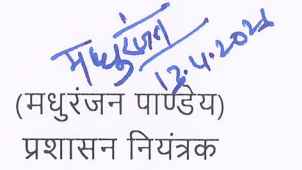 मधुरंजन
12.4.2022
(मधुरंजन पाण्डेय)
प्रशासन नियंत्रक